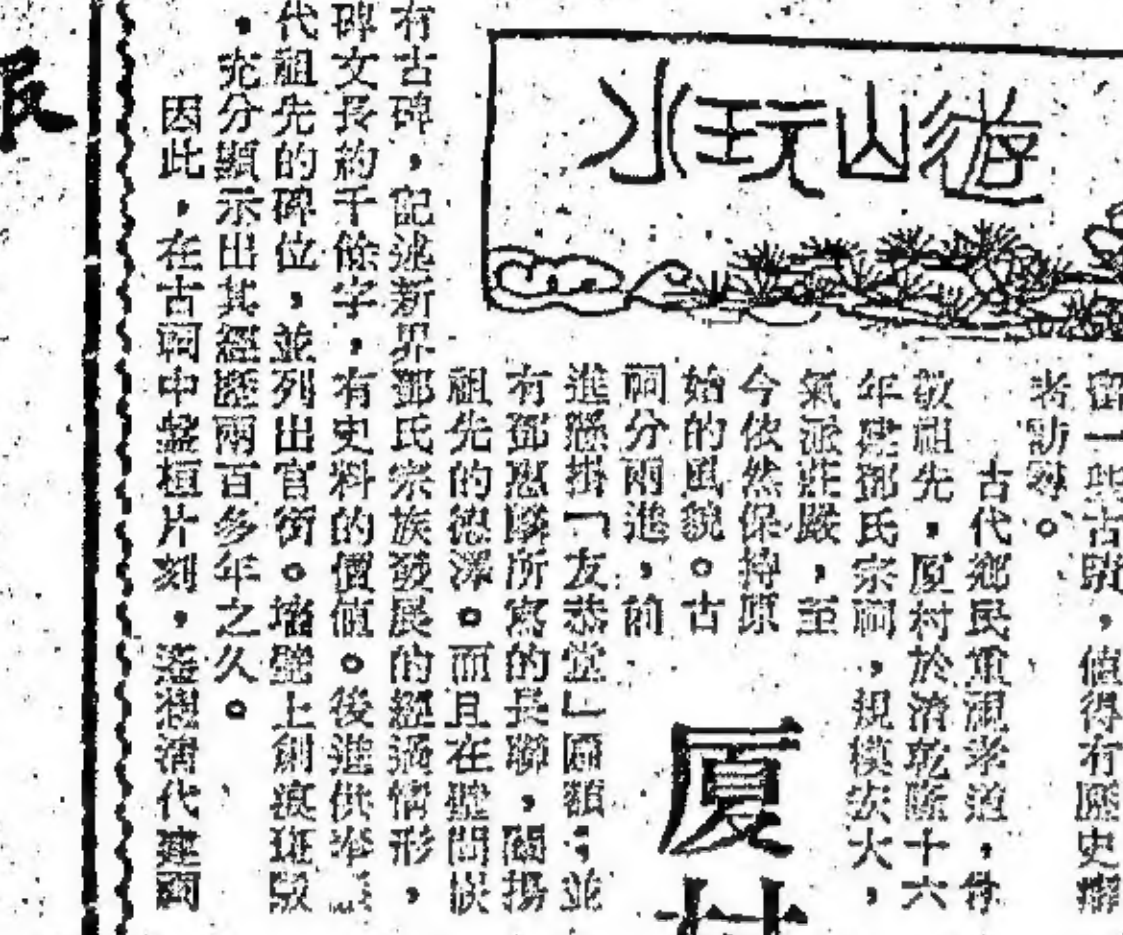 遊山玩水
厦村
留一些古蹟，值得有歷史癖
者訪尋。
古代鄉民重視孝道，
敬祖先，厦村於清乾隆十六
年建鄧氏宗祠，規模宏大，
氣派莊嚴，至
今依然保持原
始的風貌。古
祠分兩進，前
進懸掛「友恭堂」匾額；並
有鄧惠麟所寫的長聯，闡揚
祖先的德澤。而且在壁間嵌
有古碑，記述新界鄧氏宗族發展的經過情形，
碑文長約千餘字，有史料的價值。後進供奉
代祖先的碑位，並列出官銜。墻壁上創痕斑駁
，充分顯示出其經歷兩百多年之久。
因此，在古祠中盤桓片刻，遙想清代建祠
報